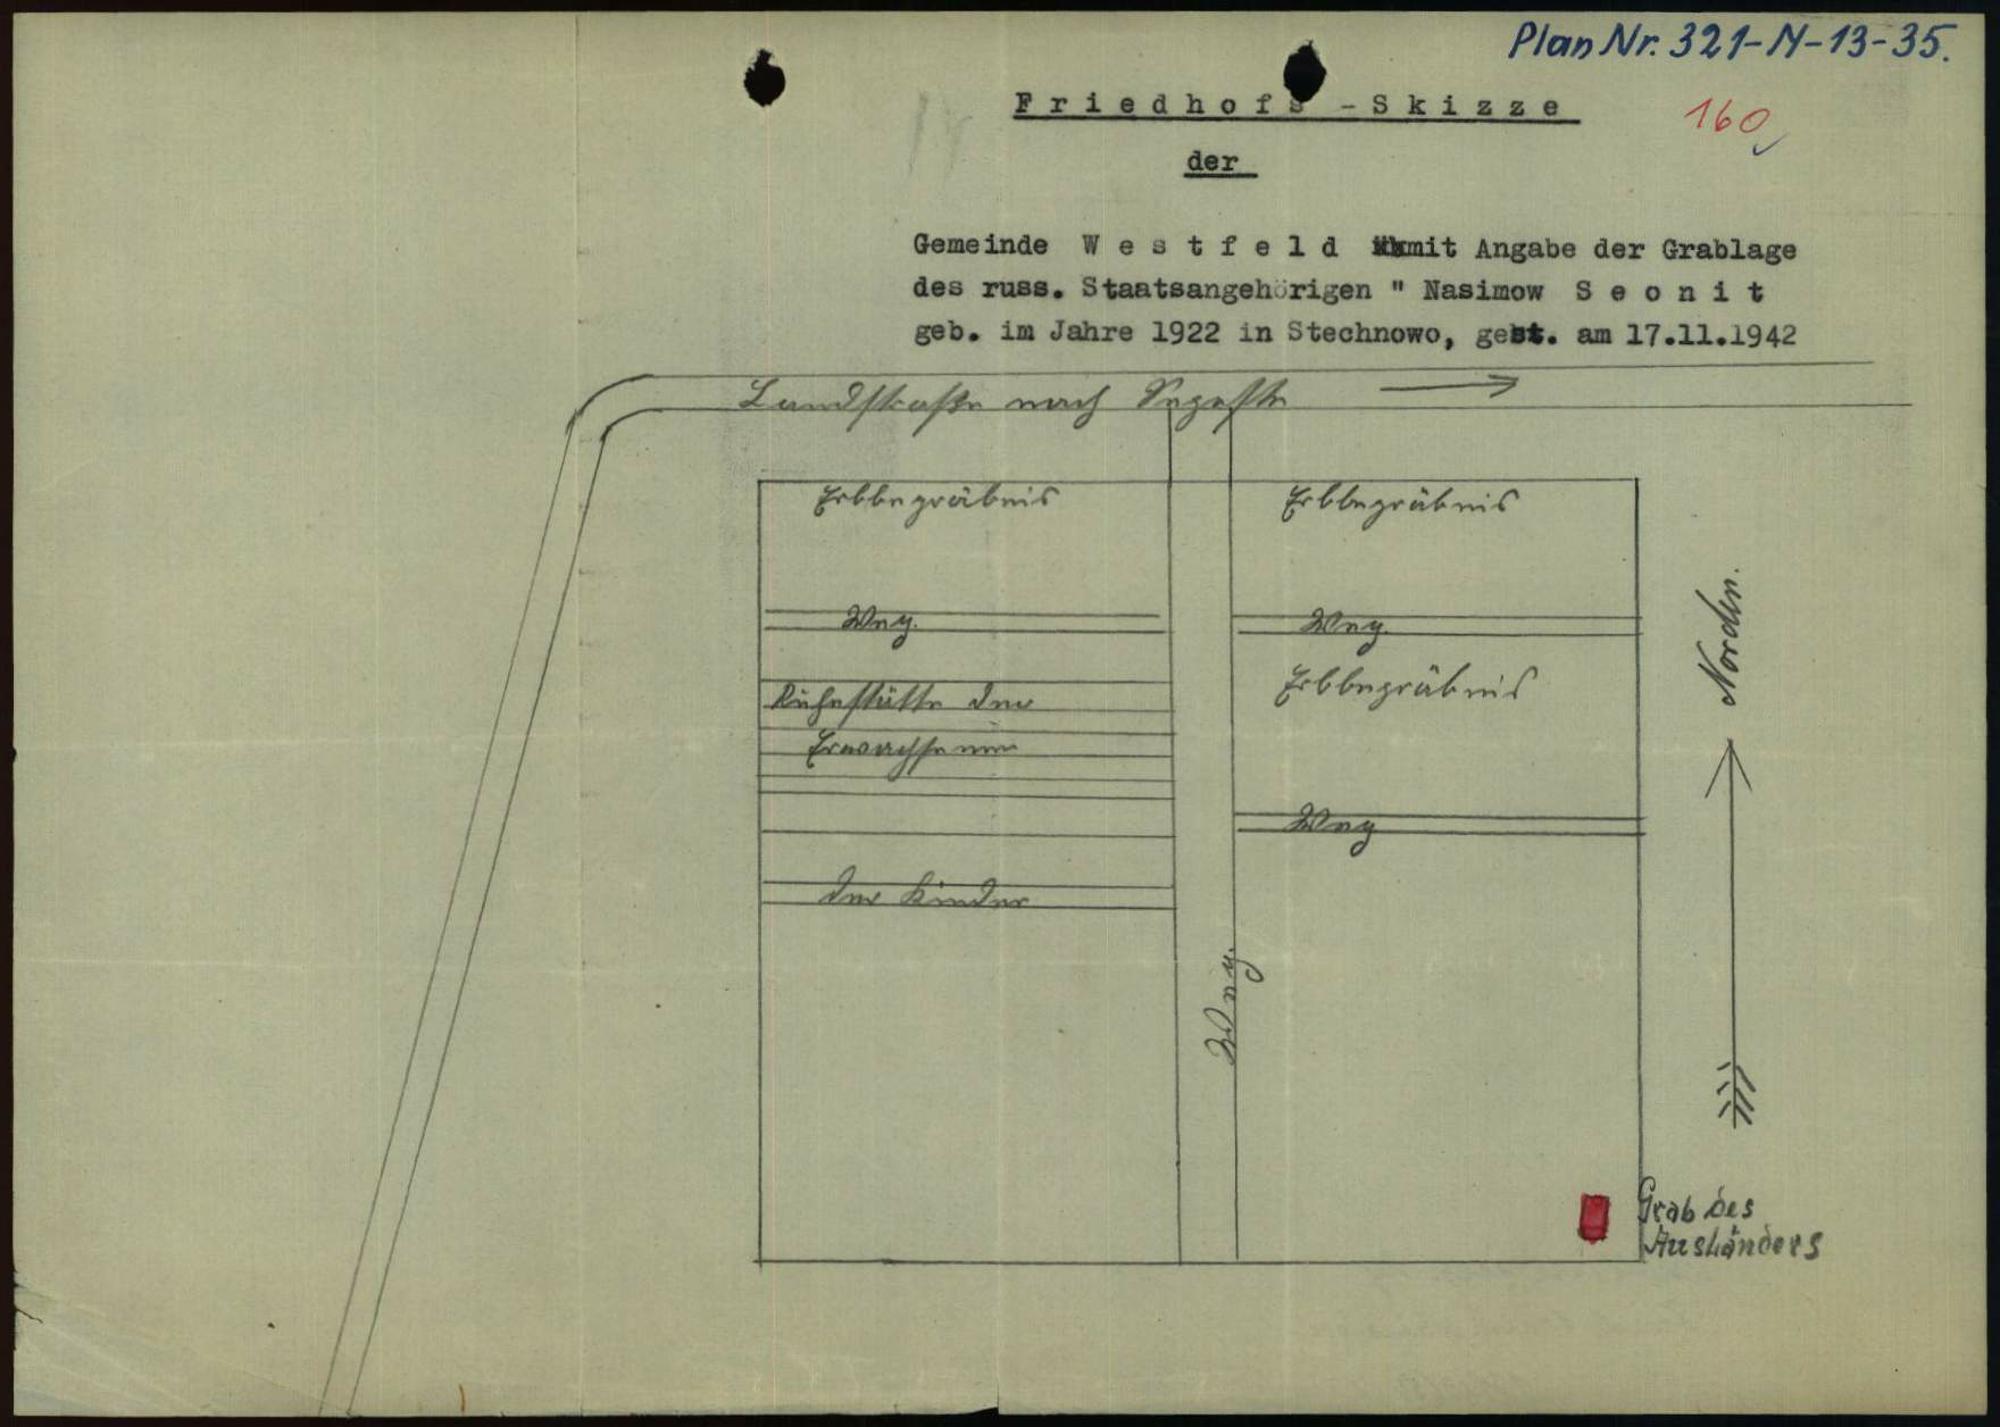 Plan Nr. 321-N-13-35.
Friedhofs - Skizze
160
der
Gemeinde Westfeld mit Angabe der Grablage
des russ. Staatsangehörigen " Nasimow Seonit
geb. im Jahre 1922 in Stechnowo, gest. am 17.11.1942
Landstraße nach Segeste
Erbbegräbnis
Erbbegräbnis
Weg.
Weg.
Norden.
Ruhestätte der
Erbbegräbnis
Erwachsenen
Weg
der Kinder
Weg.
Grab des
Ausländers